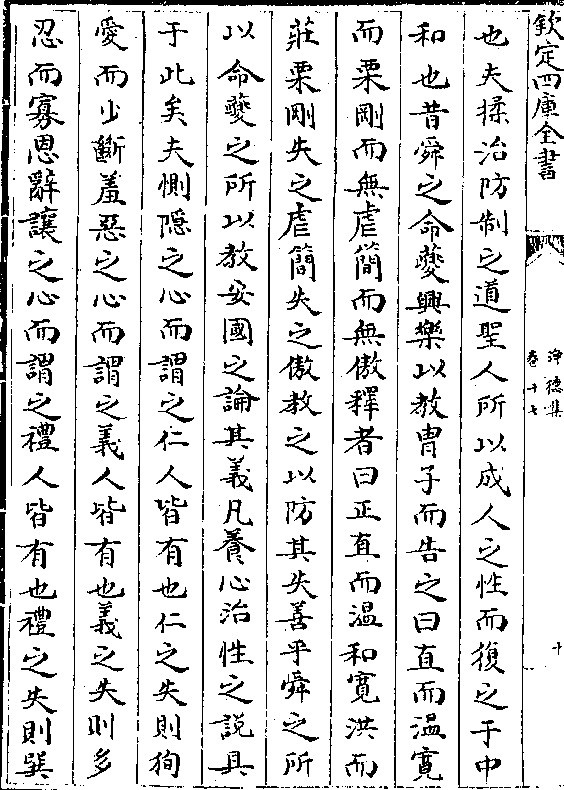 欽定四庫全書
淨德集
卷十七
十
也夫揉治防制之道聖人所以成人之性而復之于中
和也昔舜之命夔興樂以教胄子而告之曰直而溫寛
而栗剛而無虐簡而無傲釋者曰正直而溫和寛洪而
莊栗剛失之虐簡失之傲教之以防其失善乎舜之所
以命夔之所以教安國之論其義凡養心治性之説具
于此矣夫惻隱之心而謂之仁人皆有也仁之失則狥
愛而少斷羞惡之心而謂之義人皆有也義之失則多
忍而寡恩辭讓之心而謂之禮人皆有也禮之失則巽